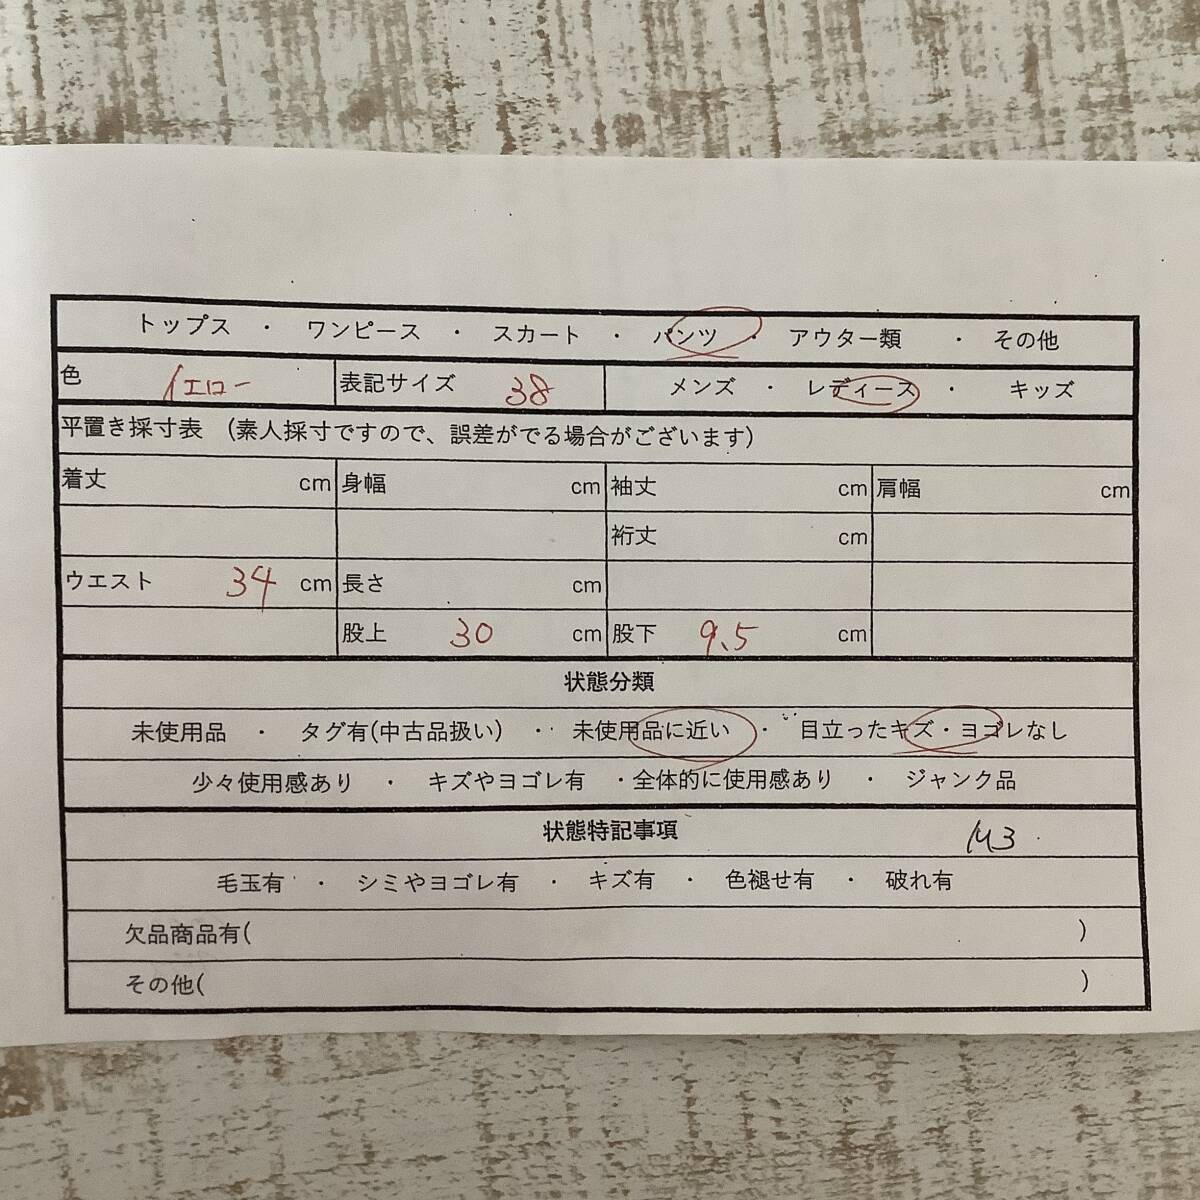 トップス ・ ワンピース ・ スカート ・ パンツ ・ アウター類 ・ その他
色 イエロー 表記サイズ 38 メンズ ・ レディース ・ キッズ
平置き採寸表 (素人採寸ですので、誤差がでる場合がございます)
着丈 cm 身幅 cm 袖丈 cm 肩幅 cm
裄丈 cm
ウエスト 34 cm 長さ cm
股上 30 cm 股下 9.5 cm
状態分類
未使用品 ・ タグ有(中古品扱い) ・・ 未使用品に近い ・ 目立ったキズ・ヨゴレなし
少々使用感あり ・ キズやヨゴレ有 ・全体的に使用感あり ・ ジャンク品
状態特記事項 M3
毛玉有 ・ シミやヨゴレ有 ・ キズ有 ・ 色褪せ有 ・ 破れ有
欠品商品有( )
その他( )